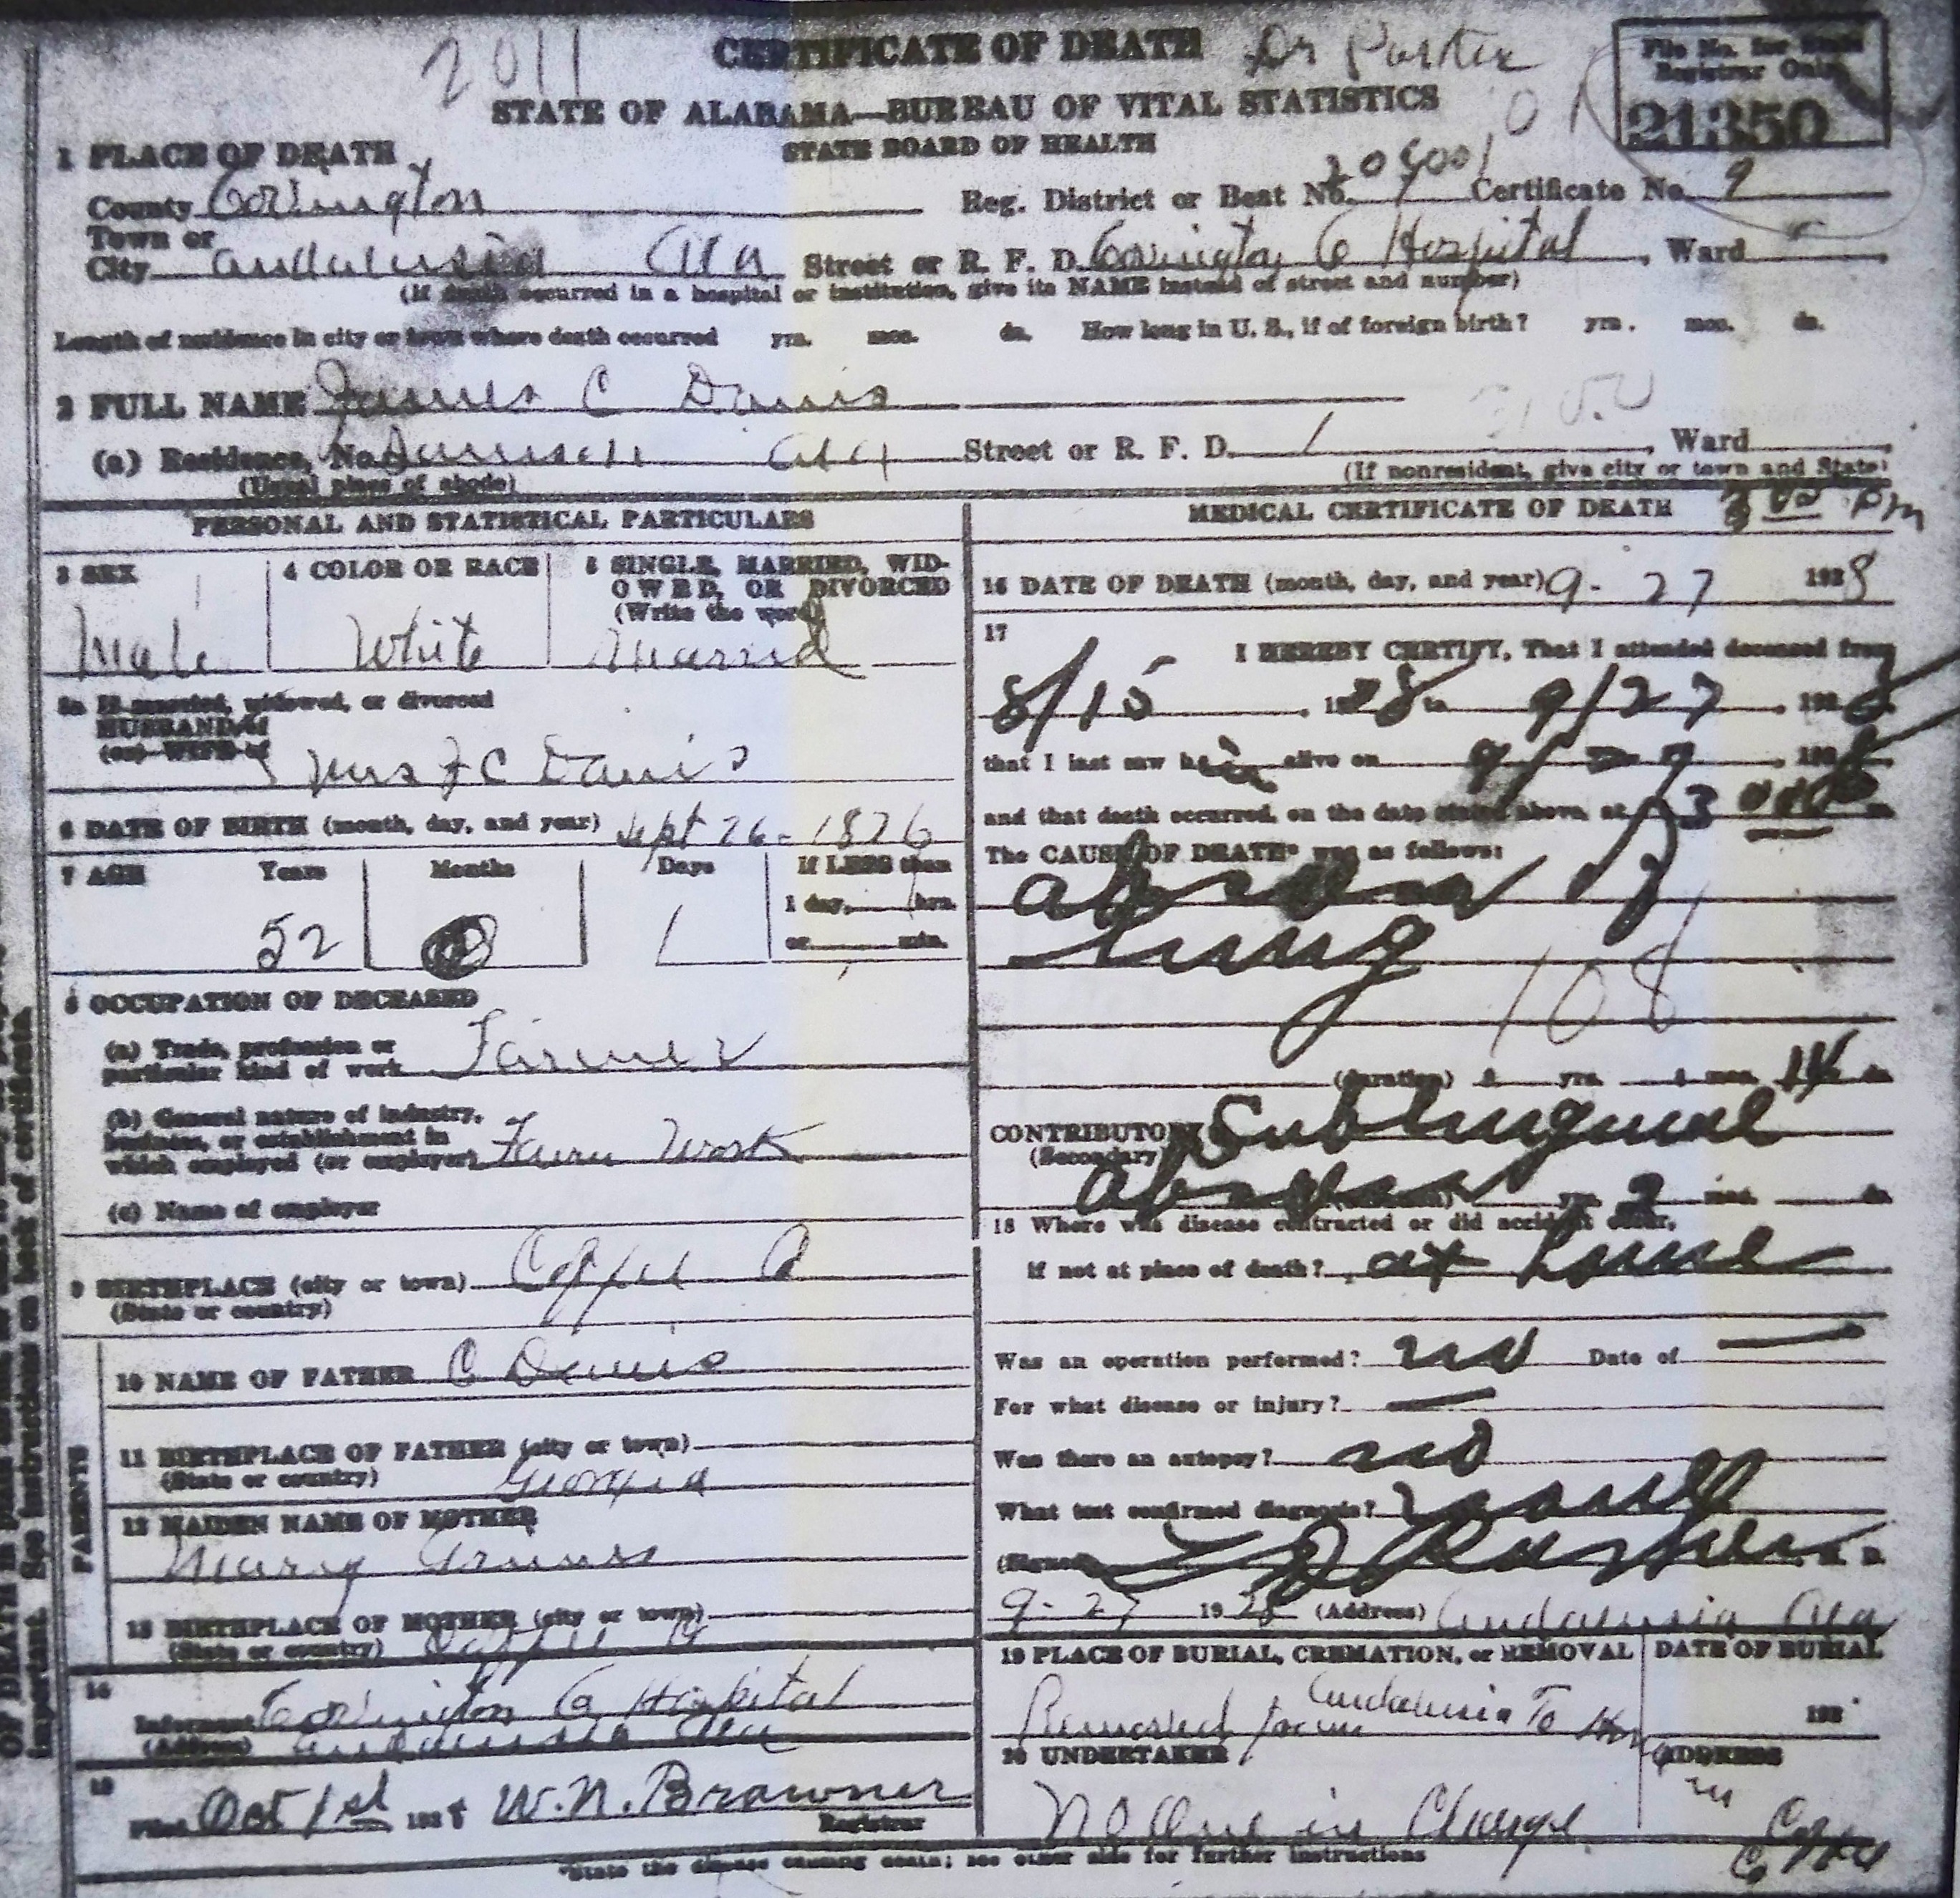 2011 CERTIFICATE OF DEATH Dr Parker
File No. for State
Registrar Only
21350
STATE OF ALABAMA—BUREAU OF VITAL STATISTICS
STATE BOARD OF HEALTH
1 PLACE OF DEATH
County Covington Reg. District or Beat No. Certificate No. 9
Town or
City Andalusia Ala Street or R. F. D. Covington Co Hospital, Ward
(If death occurred in a hospital or institution, give its NAME instead of street and number)
Length of residence in city or town where death occurred yrs. mos. ds. How long in U. S., if of foreign birth? yrs. mos. ds.
2 FULL NAME James C Davis
(a) Residence, No. Ala Street or R. F. D. 1, Ward
(Usual place of abode) (If nonresident, give city or town and State)
PERSONAL AND STATISTICAL PARTICULARS
3 SEX 4 COLOR OR RACE 5 SINGLE, MARRIED, WID-
OWED, OR DIVORCED
(Write the word)
Male White Married
5a If married, widowed, or divorced
HUSBAND of
(or) WIFE of
Mrs J C Davis
6 DATE OF BIRTH (month, day, and year) Sept 26-1826
7 AGE Years Months Days If LESS than
1 day, hrs.
or min.
52 0 1
8 OCCUPATION OF DECEASED
(a) Trade, profession or
particular kind of work Farmer
(b) General nature of industry,
business, or establishment in
which employed (or employer) Farm Work
(c) Name of employer
9 BIRTHPLACE (city or town) Coffee Co
(State or country)
PARENTS
10 NAME OF FATHER C Davis
11 BIRTHPLACE OF FATHER (city or town)
(State or country) Georgia
12 MAIDEN NAME OF MOTHER
Mary
13 BIRTHPLACE OF MOTHER (city or town)
(State or country) Coffee Co
14
Informant Covington Co Hospital
(Address) Andalusia Ala
15
Filed Oct 1st 1928 W. N. Brawner
Registrar
MEDICAL CERTIFICATE OF DEATH 3 00 Pm
16 DATE OF DEATH (month, day, and year) 9-27 1928
17
I HEREBY CERTIFY, That I attended deceased from
8/15, 1928 to 9/27, 1928
that I last saw him alive on 9/27, 1928
and that death occurred, on the date stated above, at 3
The CAUSE OF DEATH* was as follows:
abscess of
lung
108
(duration) yrs. mos. 14 ds.
CONTRIBUTORY Sublingual
(Secondary)
abscess (duration) yrs. 2 mos. ds.
18 Where was disease contracted or did accident occur,
if not at place of death? at home
Was an operation performed? no Date of
For what disease or injury?
Was there an autopsy? no
What test confirmed diagnosis?
(Signed) Parker M. D.
9-27 1928 (Address) Andalusia Ala
19 PLACE OF BURIAL, CREMATION, or REMOVAL DATE OF BURIAL
Removed from Andalusia To 192
20 UNDERTAKER ADDRESS
No One in Charge
Coffee
*State the disease causing death; see other side for further instructions
OF DEATH in plain
important. See instructions on back of certificate.